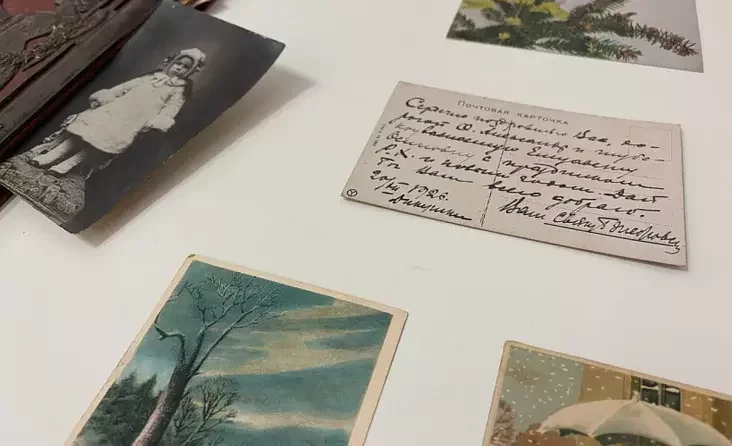 Почтовая карточка
Сердечно поздравляю Вас, до-
рогой О. Александр и глубо-
коуважаемую Елизавету
с праздником
Р. Х. и новым годом. Дай
Бог Вам всего доброго.
1926.
Ваш